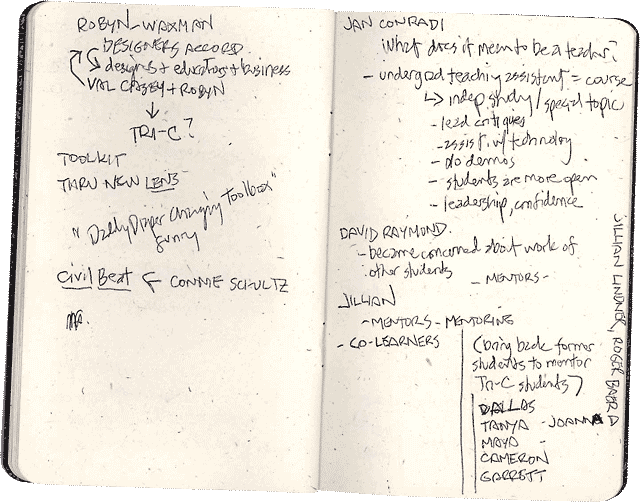 ROBYN-WAXMAN
DESIGNERS ACCORD
designs + educators + business
VAL CASEY + ROBYN
↓
TRI-C?
TOOLKIT
THRU NEW LENS
"Daddy Diaper Changing Toolbox"
funny
Civil Beat ← CONNIE SCHULTZ
JAN CONRADI
What does it mean to be a teacher?
- undergrad teaching assistant = course
↳ indep study/special topic
- lead critiques
- assist w/ technology
- do demos
- students are more open
- leadership, confidence
DAVID RAYMOND
- became concerned about work of
other students
- MENTORS -
JILLIAN
- MENTORS - MENTORING
- CO-LEARNERS
(bring back former
students to mentor
Tri-C students)
DALLAS
TANYA - JOANNA
MAYA
CAMERON
GARRETT
JILLIAN LINDNER, ROGER BAERD